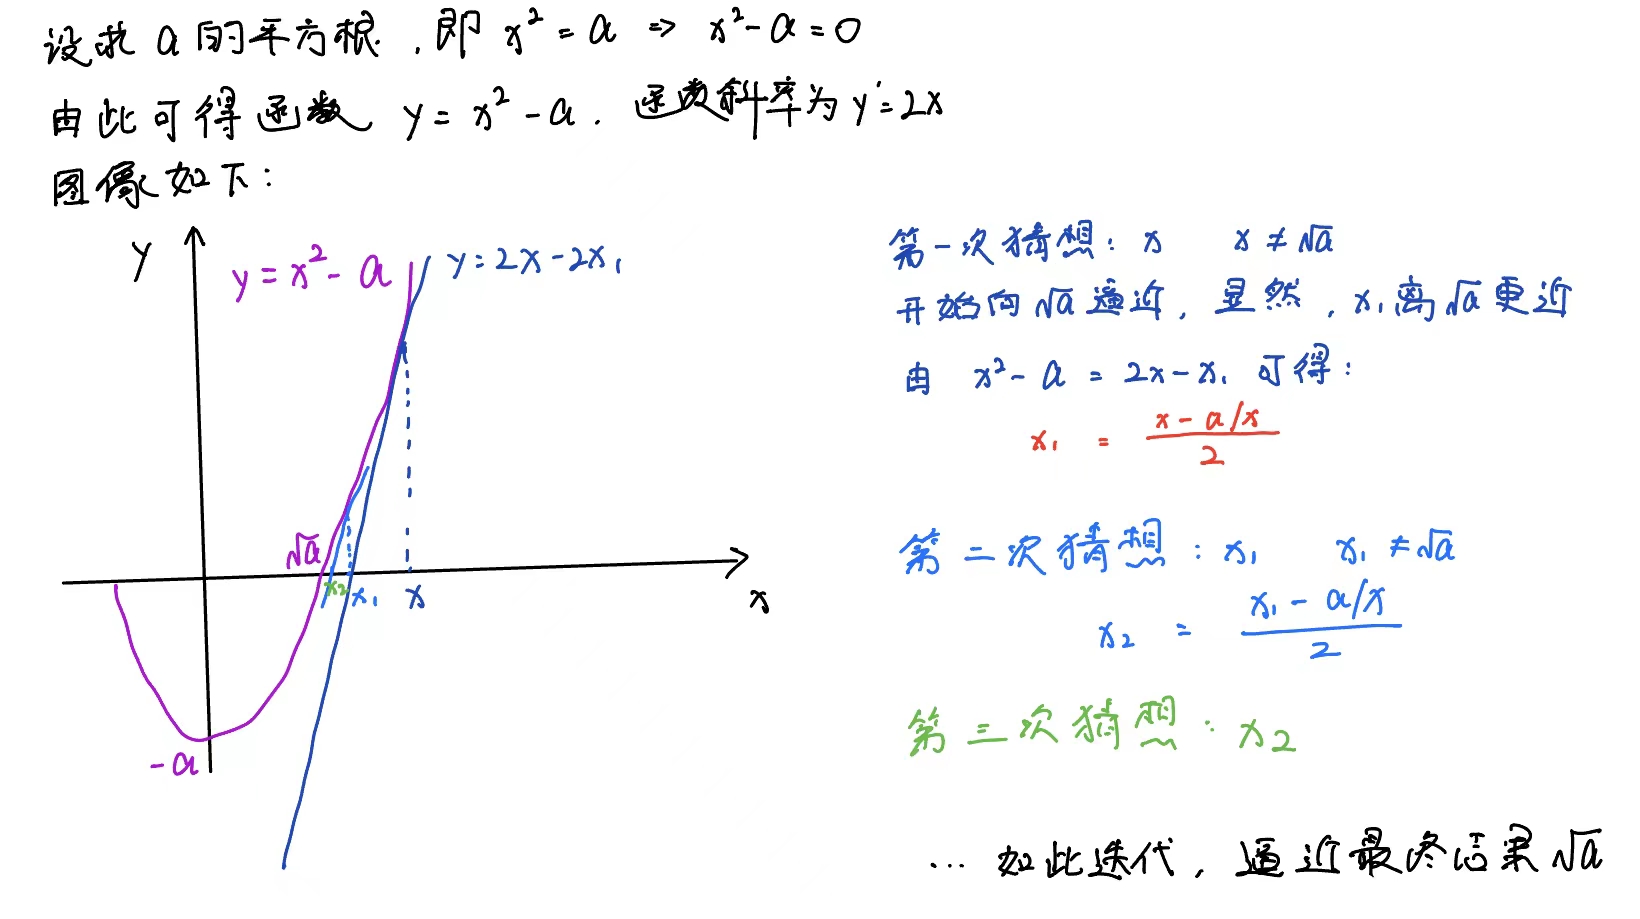 设求 a 的平方根，即 x² = a ⇒ x² - a = 0
由此可得函数 y = x² - a. 函数斜率为 y' = 2x
图像如下：
y
y = x² - a
y = 2x - 2x₁
√a
x₂
x₁
x
x
-a
第一次猜想：x x ≠ √a
开始向 √a 逼近，显然，x₁离 √a 更近
由 x² - a = 2x - x₁ 可得：
x₁ = (x - a/x)/2
第二次猜想：x₁ x₁ ≠ √a
x₂ = (x₁ - a/x)/2
第三次猜想：x₂
... 如此迭代，逼近最终结果 √a